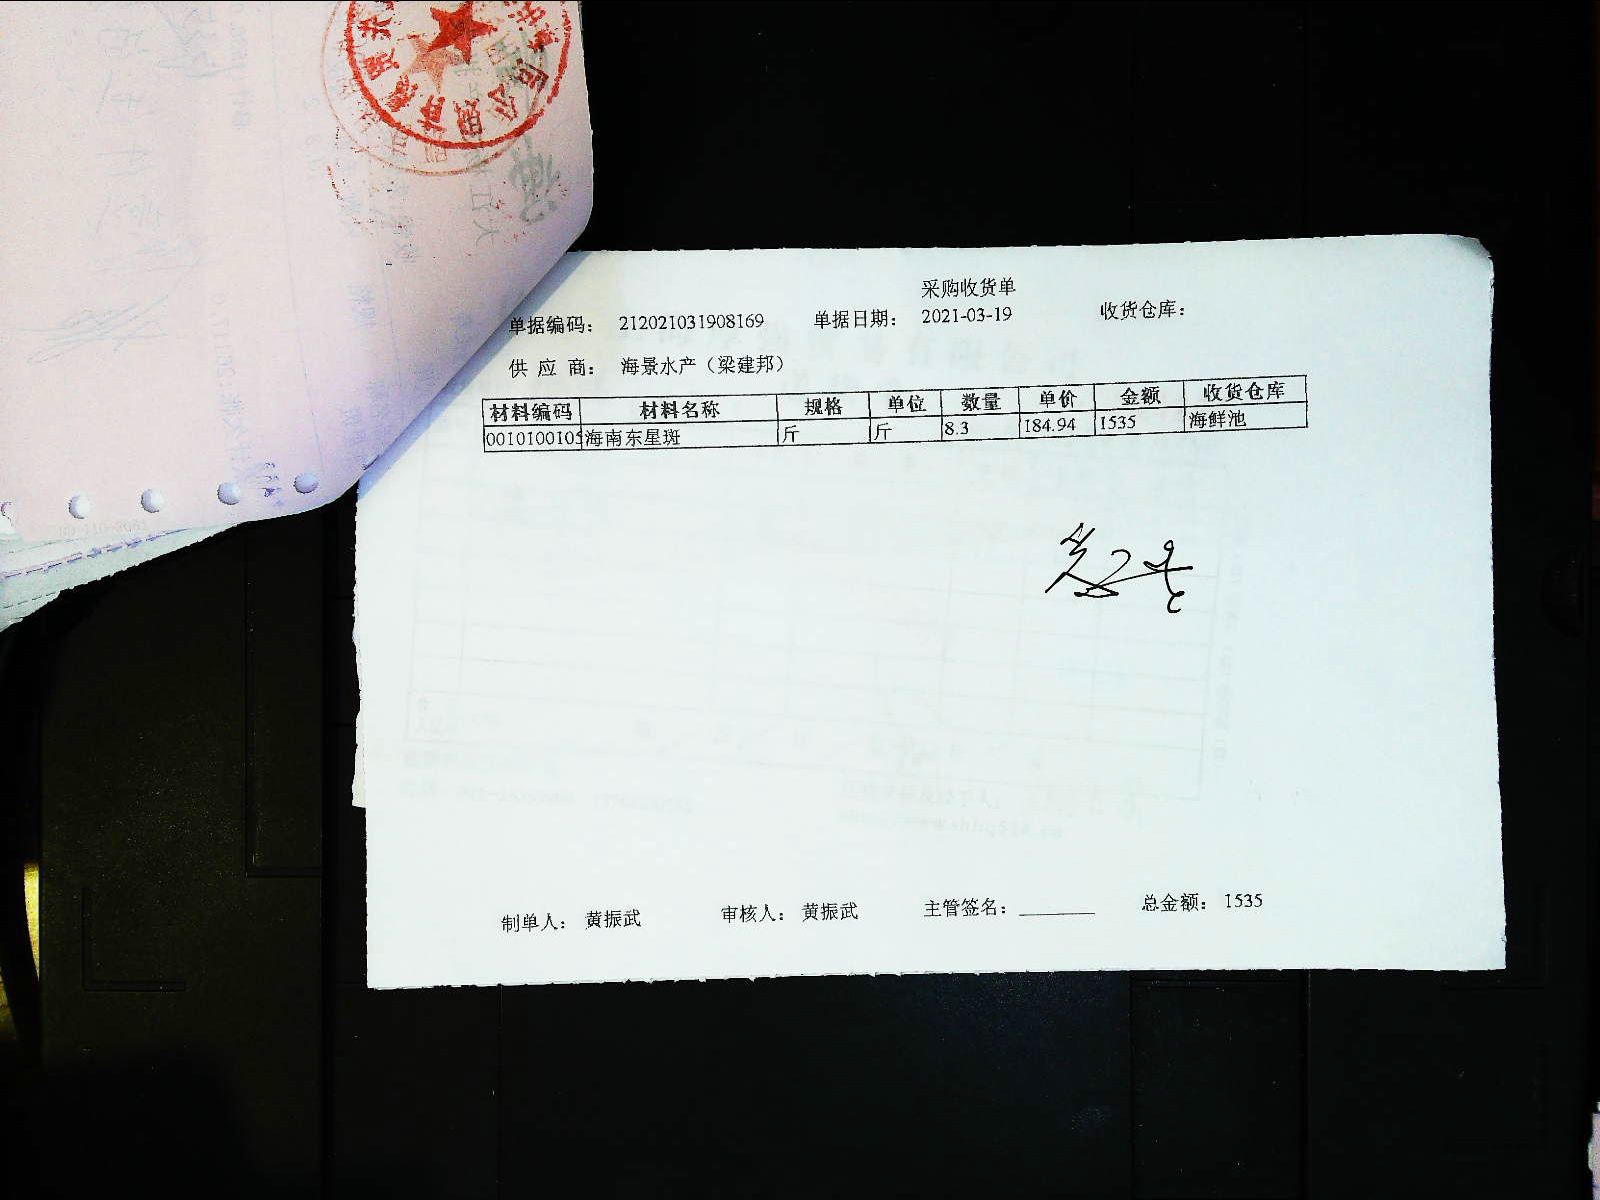 采购收货单
单据编码: 212021031908169 单据日期: 2021-03-19 收货仓库:
供 应 商: 海景水产（梁建邦）
材料编码 材料名称 规格 单位 数量 单价 金额 收货仓库
0010100105 海南东星斑 斤 斤 8.3 184.94 1535 海鲜池
制单人: 黄振武 审核人: 黄振武 主管签名: 总金额: 1535